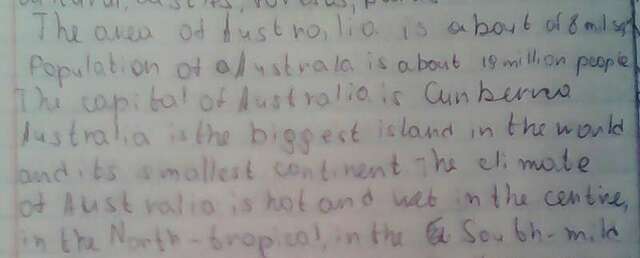 The area of Australia is about of 8 mil sq
Population of Australa is about 19 million people
The capital of Australia is Cunberra
Australia is the biggest island in the would
and its smallest continent. The climate
of Australia is hot and wet in the centre,
in the North-tropical, in the South-mild